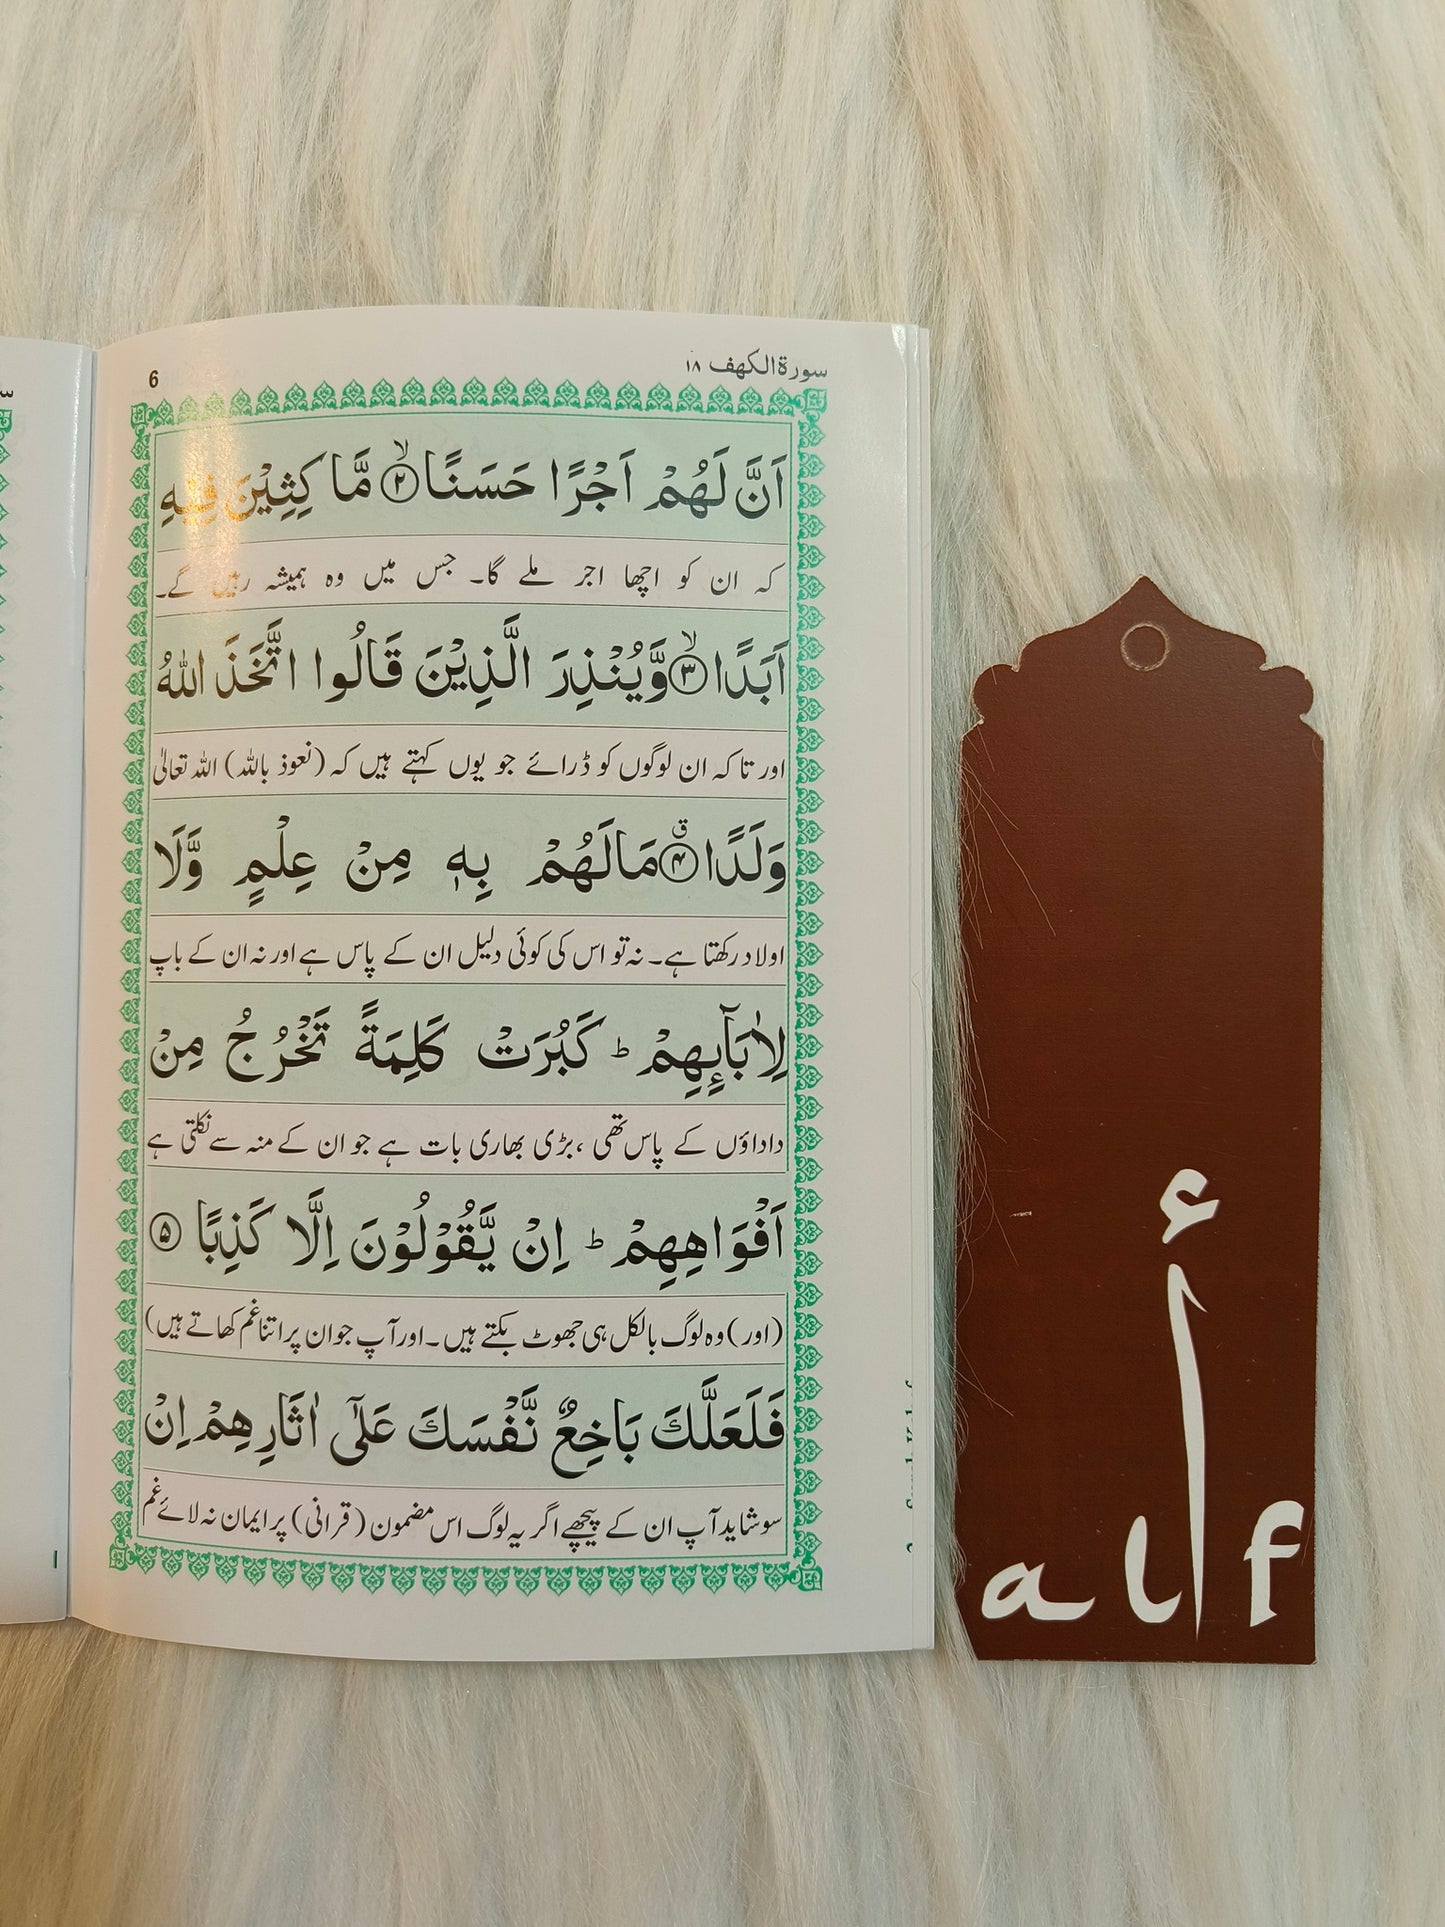 سورة الكهف ١٨
6
اَنَّ لَهُمْ اَجْرًا حَسَنًا ۙ﴿٢﴾ مَّا كِثِيْنَ فِيْهِ
کہ ان کو اچھا اجر ملے گا۔ جس میں وہ ہمیشہ رہیں گے۔
اَبَدًا ۙ﴿٣﴾ وَّيُنْذِرَ الَّذِيْنَ قَالُوا اتَّخَذَ اللّٰهُ
اور تاکہ ان لوگوں کو ڈرائے جو یوں کہتے ہیں کہ (نعوذ باللہ) اللہ تعالیٰ
وَلَدًا ۤق﴿۴﴾ مَالَهُمْ بِهٖ مِنْ عِلْمٍ وَّلَا
اولاد رکھتا ہے۔ نہ تو اس کی کوئی دلیل ان کے پاس ہے اور نہ ان کے باپ
لِاٰبَآىِٕهِمْ ؕ كَبُرَتْ كَلِمَةً تَخْرُجُ مِنْ
داداؤں کے پاس تھی ، بڑی بھاری بات ہے جو ان کے منہ سے نکلتی ہے
اَفْوَاهِهِمْ ؕ اِنْ يَّقُوْلُوْنَ اِلَّا كَذِبًا ﴿۵﴾
(اور) وہ لوگ بالکل ہی جھوٹ بکتے ہیں ۔ اور آپ جو ان پر اتنا غم کھاتے ہیں)
فَلَعَلَّكَ بَاخِعٌ نَّفْسَكَ عَلٰٓى اٰثَارِهِمْ اِنْ
سو شاید آپ ان کے پیچھے اگر یہ لوگ اس مضمون (قرانی) پر ایمان نہ لائے غم
أ
alf